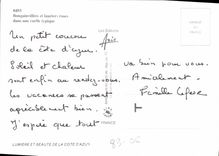 Bougainvilliers et lauriers roses
dans une ruelle typique
Un petit coucou
de la Côte d'azur.
Soleil et chaleur
sont enfin au rendez-vous.
Les vacances se passent
agréablement bien.
J'espère que tout
va bien pour vous.
Amicalement.
LUMIERE ET BEAUTE DE LA COTE D'AZUR